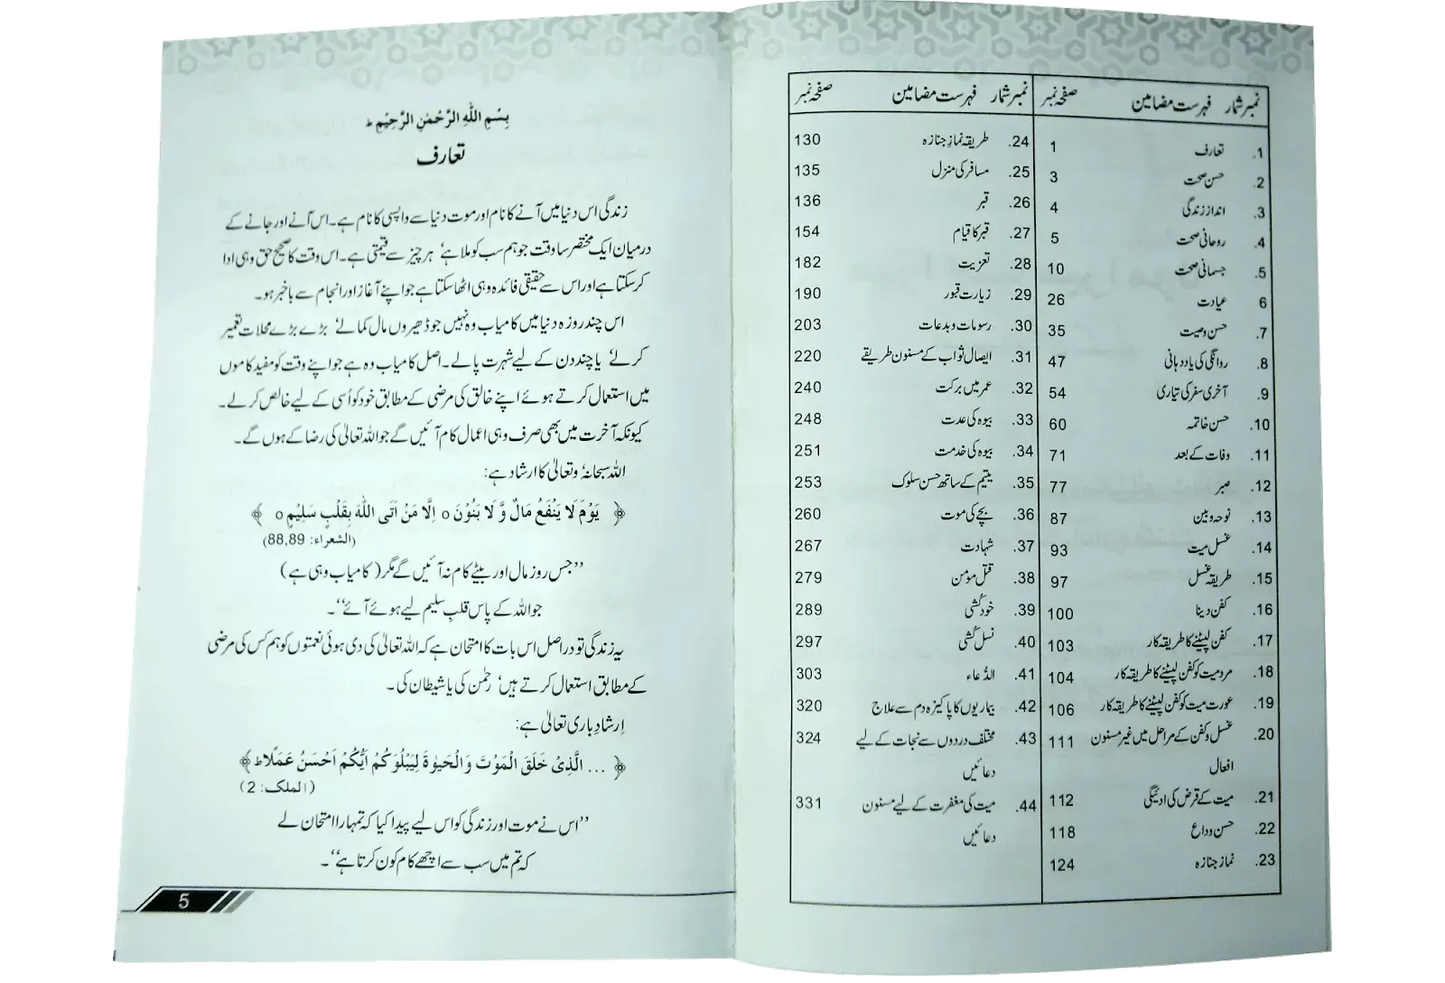 نمبر شمار فہرست مضامین صفحہ نمبر
1. تعارف 1
2. حسن صحت 3
3. انداز زندگی 4
4. روحانی صحت 5
5. جسمانی صحت 10
6 عیادت 26
7. حسن وصیت 35
8. روانگی کی یاد دہانی 47
9. آخری سفر کی تیاری 54
10. حسن خاتمہ 60
11. وفات کے بعد 71
12. صبر 77
13. نوحہ و بین 87
14. غسل میت 93
15. طریقہ غسل 97
16. کفن دینا 100
17. کفن لپیٹنے کا طریقہ کار 103
18. مرد میت کو کفن لپیٹنے کا طریقہ کار 104
19. عورت میت کو کفن لپیٹنے کا طریقہ کار 106
20. غسل و کفن کے مراحل میں غیر مسنون 111
افعال
21. میت کے قرض کی ادائیگی 112
22. حسن وداع 118
23. نماز جنازہ 124
نمبر شمار فہرست مضامین صفحہ نمبر
24. طریقہ نماز جنازہ 130
25. مسافر کی منزل 135
26. قبر 136
27. قبر کا قیام 154
28. تعزیت 182
29. زیارت قبور 190
30. رسومات و بدعات 203
31. ایصال ثواب کے مسنون طریقے 220
32. عمر میں برکت 240
33. بیوہ کی عدت 248
34. بیوہ کی خدمت 251
35. یتیم کے ساتھ حسن سلوک 253
36. بچے کی موت 260
37. شہادت 267
38. قتل مومن 279
39. خودکُشی 289
40. نسل کُشی 297
41. الدُّعاء 303
42. بیماریوں کا پاکیزہ دم سے علاج 320
43. مختلف دردوں سے نجات کے لیے 324
دعائیں
44. میت کی مغفرت کے لیے مسنون 331
دعائیں
بِسْمِ اللّٰهِ الرَّحْمٰنِ الرَّحِيْمِ ط
تعارف
زندگی اس دنیا میں آنے کا نام اور موت دنیا سے واپسی کا نام ہے۔ اس آنے اور جانے کے
درمیان ایک مختصر سا وقت جو ہم سب کو ملا ہے‘ ہر چیز سے قیمتی ہے۔ اس وقت کا صحیح حق وہی ادا
کر سکتا ہے اور اس سے حقیقی فائدہ وہی اٹھا سکتا ہے جو اپنے آغاز اور انجام سے باخبر ہو۔
اس چند روزہ دنیا میں کامیاب وہ نہیں جو ڈھیروں مال کمالے‘ بڑے بڑے محلات تعمیر
کر لے‘ یا چند دن کے لیے شہرت پالے۔ اصل کامیاب وہ ہے جو اپنے وقت کو مفید کاموں
میں استعمال کرتے ہوئے اپنے خالق کی مرضی کے مطابق خود کو اُسی کے لیے خالص کر لے۔
کیونکہ آخرت میں بھی صرف وہی اعمال کام آئیں گے جو اللہ تعالیٰ کی رضا کے ہوں گے۔
اللہ سبحانہٗ وتعالیٰ کا ارشاد ہے:
﴿ يَوْمَ لَا يَنْفَعُ مَالٌ وَّ لَا بَنُوْنَ o اِلَّا مَنْ اَتَى اللّٰهَ بِقَلْبٍ سَلِيْمٍ o ﴾
(الشعراء: 88,89)
’’جس روز مال اور بیٹے کام نہ آئیں گے مگر (کامیاب وہی ہے)
جو اللہ کے پاس قلبِ سلیم لیے ہوئے آئے‘‘۔
یہ زندگی تو دراصل اس بات کا امتحان ہے کہ اللہ تعالیٰ کی دی ہوئی نعمتوں کو ہم کس کی مرضی
کے مطابق استعمال کرتے ہیں‘ رحمٰن کی یا شیطان کی۔
اِرشادِ باری تعالیٰ ہے:
﴿ ... الَّذِىْ خَلَقَ الْمَوْتَ وَالْحَيٰوةَ لِيَبْلُوَكُمْ اَيُّكُمْ اَحْسَنُ عَمَلًا ط ﴾
(الملک: 2)
’’اس نے موت اور زندگی کو اس لیے پیدا کیا کہ تمہارا امتحان لے
کہ تم میں سب سے اچھے کام کون کرتا ہے‘‘۔
5